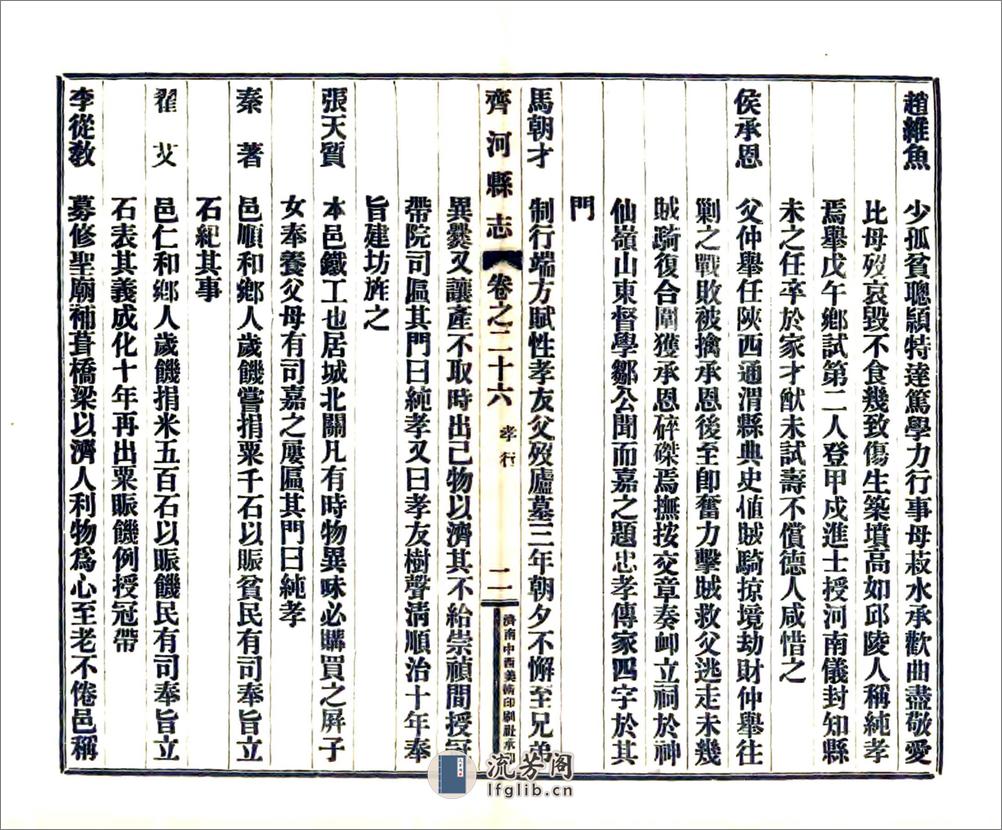 趙維魚　少孤貧聰頴特達篤學力行事母菽水承歡曲盡敬愛
比母歿哀毀不食幾致傷生築墳高如邱陵人稱純孝
焉舉戊午鄉試第二人登甲戍進士授河南儀封知縣
未之任卒於家才猷未試壽不償德人咸惜之
侯承恩　父仲舉任陝西通渭縣典史値賊騎掠境劫財仲舉往
剿之戰敗被擒承恩後至卽奮力擊賊救父逃走未幾
賊騎復合圍獲承恩碎磔焉撫按交章奏衈立祠於神
仙嶺山東督學鄒公聞而嘉之題忠孝傳家四字於其
門
馬朝才　制行端方賦性孝友父歿廬墓三年朝夕不懈至兄弟
齊河縣志　卷之二十六　孝行　二　濟南中西美術印刷社承印
異爨又讓產不取時出己物以濟其不給崇禎間授冠
帶院司區其門曰純孝又曰孝友樹聲淸順治十年奉
旨建坊旌之
張天質　本邑鐵工也居城北關凡有時物異味必購買之屏子
女奉養父母有司嘉之屢區其門曰純孝
秦著　邑順和鄉人歲饑嘗捐粟千石以賑貧民有司奉旨立
石紀其事
翟艾　邑仁和鄉人歲饑捐米五百石以賑饑民有司奉旨立
石表其義成化十年再出粟賑饑例授冠帶
李從敎　募修聖廟補葺橋梁以濟人利物爲心至老不倦邑稱
流芳阁
lfglib.cn